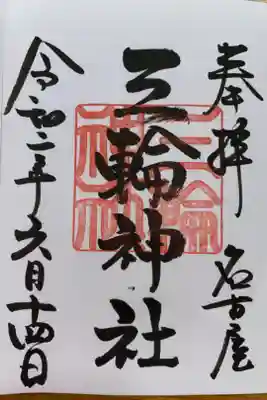 奉拝 名古屋
三輪神社
令和二年六月十四日